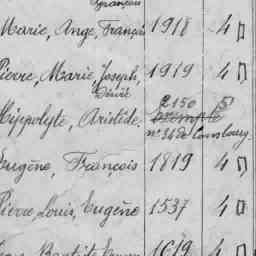 Français
Marie, Ange, François 1918 4
Pierre, Marie, Joseph, 1919 4
Désiré
2150
Hippolyte, Aristide. exempté 5
n° 34 de
Eugène, François 1819 4
Pierre, Louis, Eugène 1537 4
Baptiste 1679 4